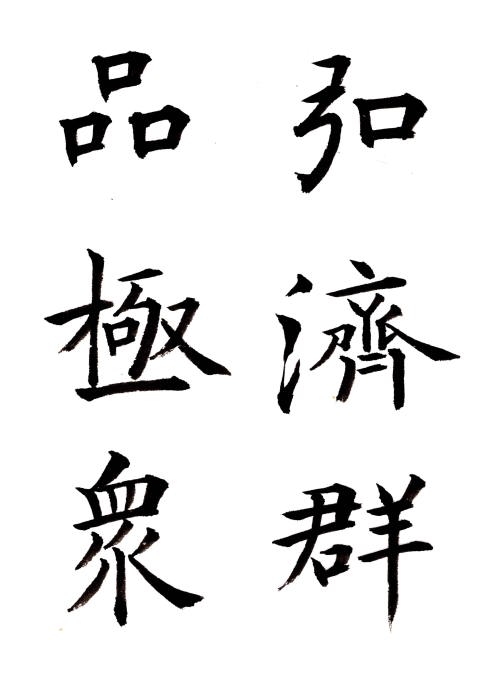 弘濟群
品極衆